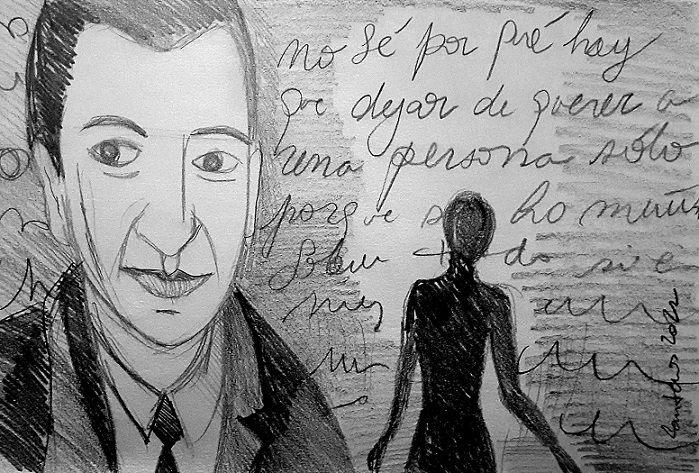 no sé por qué hay
que dejar de querer a
una persona sólo
porque se ha
Sobre todo si